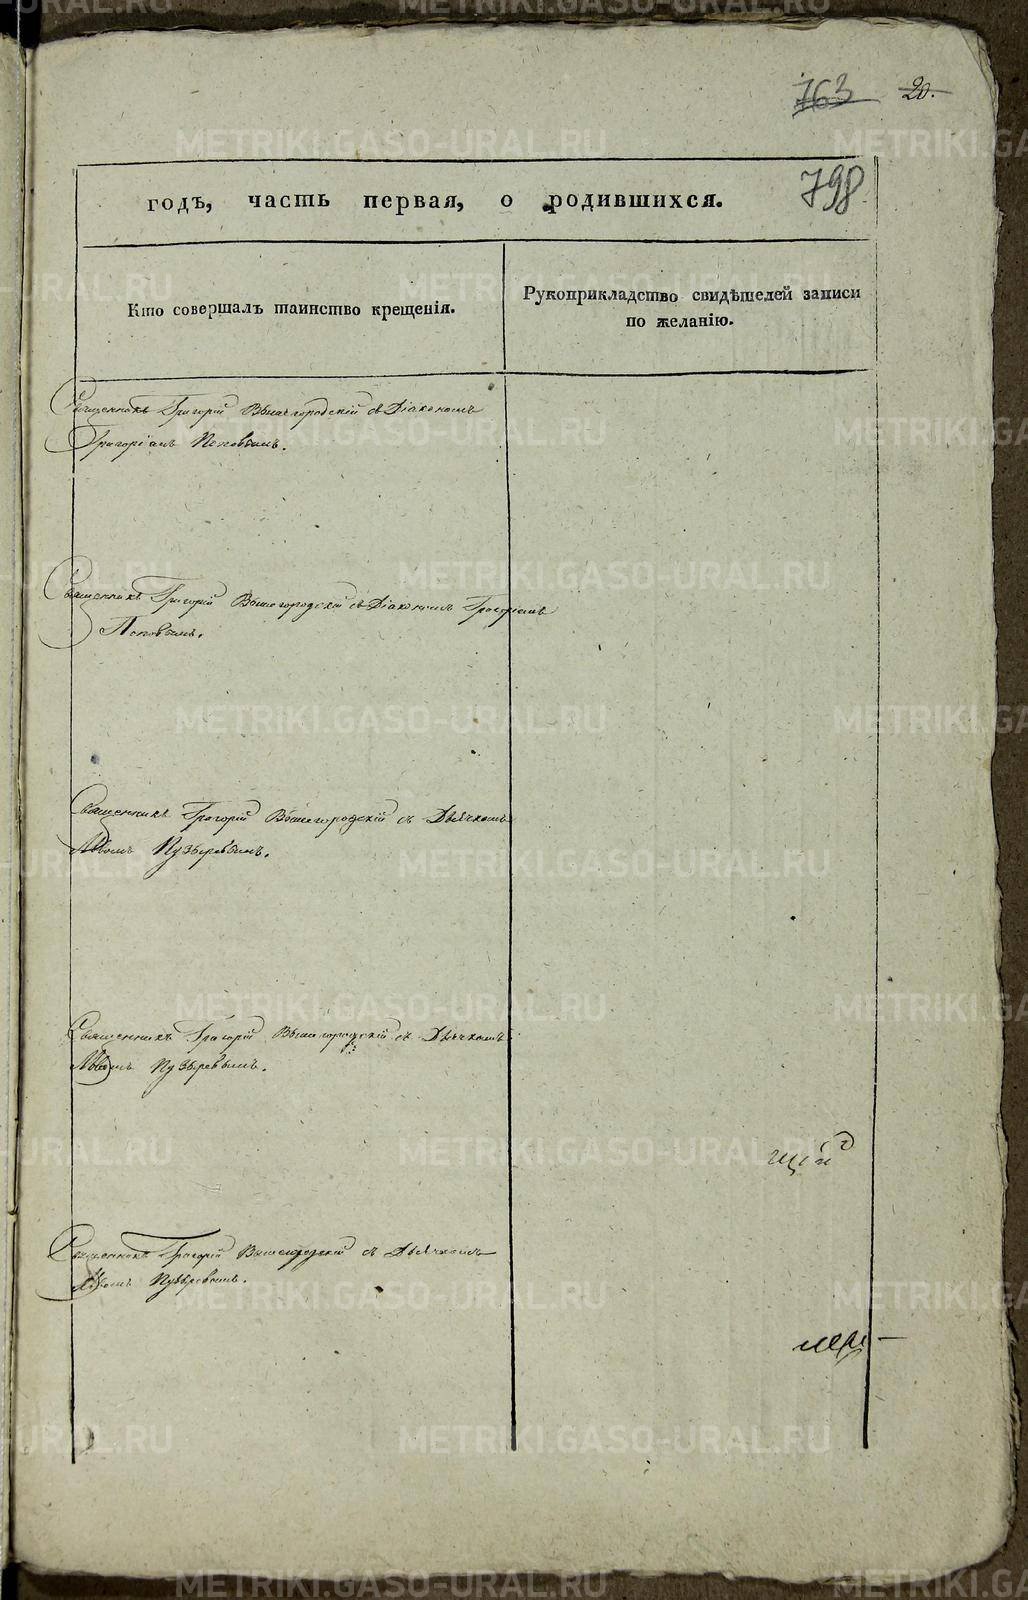 763 20.
798
годъ, часть первая, о родившихся.
Кто совершалъ таинство крещенія.
Рукоприкладство свидѣтелей записи
по желанію.
Священникъ Григорій Вышегородскій съ Діакономъ
Григоріемъ Поповымъ.
Священникъ Григорій Вышегородскій съ Діакономъ Григоріемъ
Поповымъ.
Священникъ Григорій Вышегородскій съ Дьячкомъ
Львомъ Пузыревымъ.
Священникъ Григорій Вышегородскій съ Дьячкомъ
Львомъ Пузыревымъ.
щій
Священникъ Григорій Вышегородскій съ Дьячкомъ
Львомъ Пузыревымъ.
METRIKI.GASO-URAL.RU